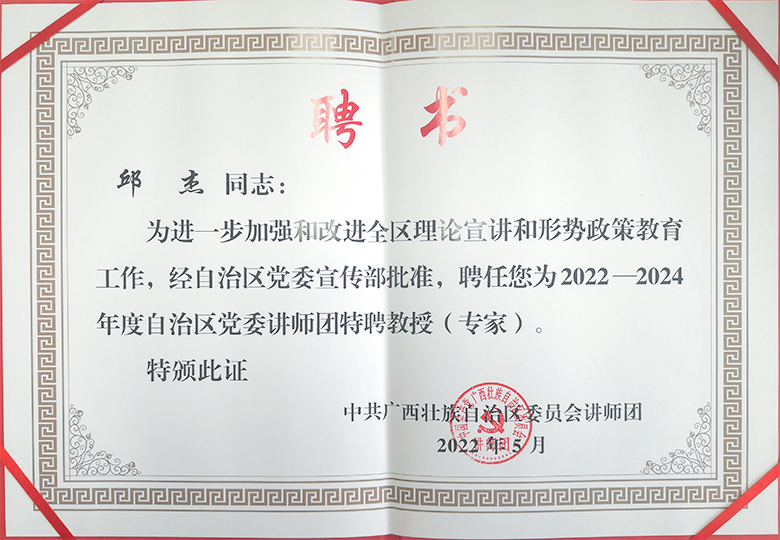 聘书
邱 杰 同志：
为进一步加强和改进全区理论宣讲和形势政策教育
工作，经自治区党委宣传部批准，聘任您为2022—2024
年度自治区党委讲师团特聘教授（专家）。
特颁此证
中共广西壮族自治区委员会讲师团
2022 年 5 月
讲师团